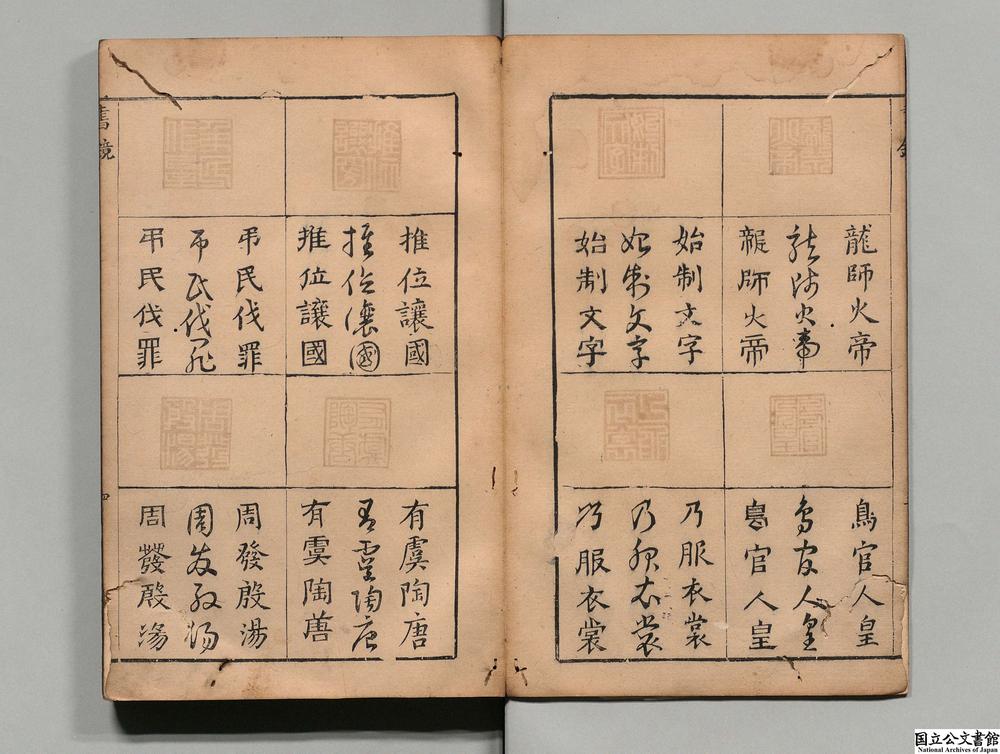 龍師火帝
龍師火帝
龍師火帝
鳥官人皇
鳥官人皇
鳥官人皇
始制文字
始制文字
始制文字
乃服衣裳
乃服衣裳
乃服衣裳
推位讓國
推位讓國
推位讓國
有虞陶唐
有虞陶唐
有虞陶唐
弔民伐罪
弔民伐罪
弔民伐罪
周發殷湯
周發殷湯
周發殷湯
書鏡
四
国立公文書館
National Archives of Japan